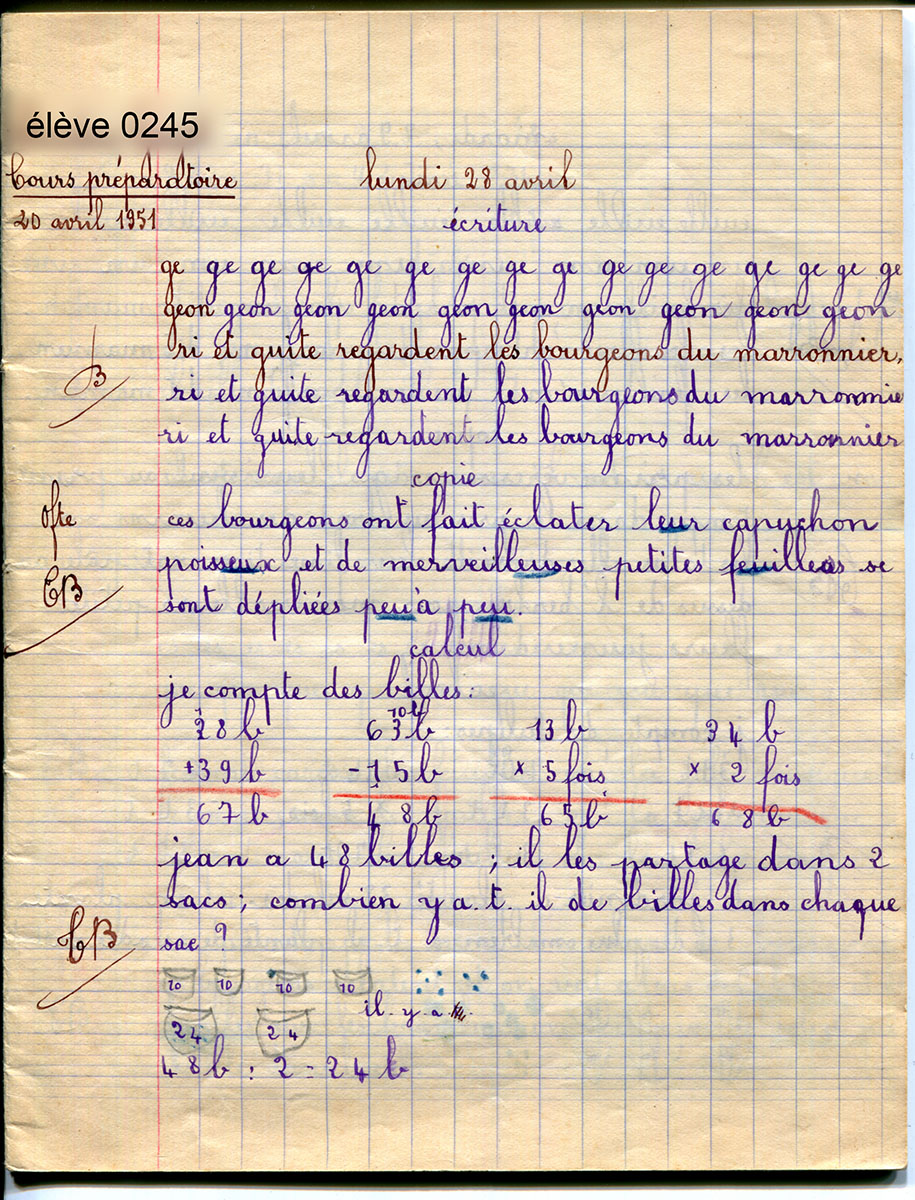 élève 0245
Cours préparatoire lundi 28 avril
20 avril 1951 écriture
ge ge ge ge ge ge ge ge ge ge ge ge ge ge ge ge
geon geon geon geon geon geon geon geon geon geon
ri et guite regardent les bourgeons du marronnier,
B
ri et guite regardent les bourgeons du marronnie
ri et guite regardent les bourgeons du marronnier
copie
ces bourgeons ont fait éclater leur capuchon
poisseux et de merveilleuses petites feuilles se
TB
sont dépliées peu à peu.
calcul
je compte des billes:
28 b 63 b 13 b 34 b
+39 b -15 b × 5 fois × 2 fois
67 b 48 b 65 b 68 b
jean a 48 billes ; il les partage dans 2
sacs ; combien y a. t. il de billes dans chaque
TB
sac ?
10 10 10 10
il y a
24 24
48 b : 2 = 24 b